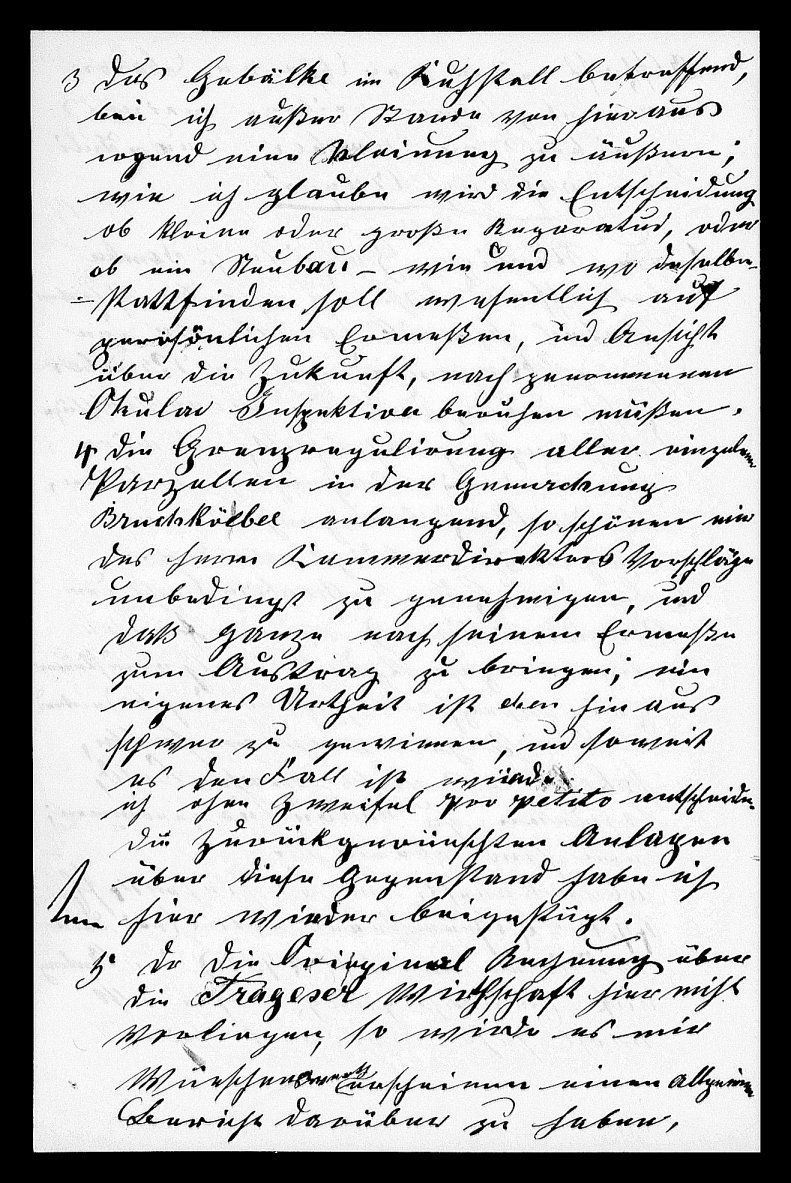 3 das Gebälke im Kuhstall betreffend,
bin ich außer Stande von hier aus
irgend eine Meinung zu äußern;
wie ich glaube wird die Entscheidung
ob kleine oder große Reparatur, oder
ob ein Neubau – wie und wo derselbe
- stattfinden soll wesentlich auf
persönlichen Ermeßen, und Ansicht
über die Zukunft, nach genommenen
Okular Inspektion beruhen müßen.
4 die Grenzregulirung aller einzelnen
Parzellen in der Gemarkung
Bruchköbel anlangend, so schönen wir
des Herrn Kammerdirektors Vorschläge
unbedingt zu genehmigen, und
daß Ganze nach seinem Ermeßen
zum Austrag zu bringen; ein
eigenes Urtheil ist von hier aus
schwer zu gewinnen, und soweit
es den Fall ist würde
ich ohne Zweifel pro petito entscheiden
die zurückgewünschten Anlagen
über diese Gegenstand habe ich
hier wieder beigefügt.
5 Da die Original Rechnung über
die Trageser Wirthschaft hier nicht
Vorliegen, so würde es mir
Wünschenswerth erscheinen einen Allgemeinen
Bericht darüber zu haben,